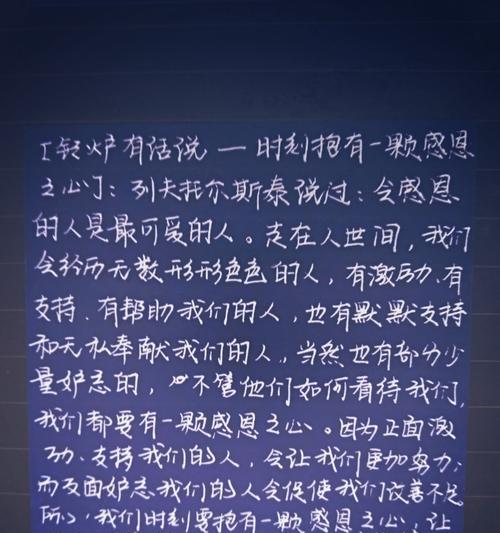 [铃炉有话说 — 时刻抱有一颗感恩
之心]：列夫托尔斯泰说过：会感恩
的人是最可爱的人。走在人世间，我们
会经历无数形形色色的人，有激励、有
支持、有帮助我们的人，也有默默支持
和无私奉献我们的人，当然也有部分少
量妒忌的，不管他们如何看待我们，
我们都要有一颗感恩之心。因为正面激
励、支持我们的人，会让我们更加努力，
而反面妒忌我们的人会促使我们改善不足
所以，我们时刻要抱有一颗感恩之心，让